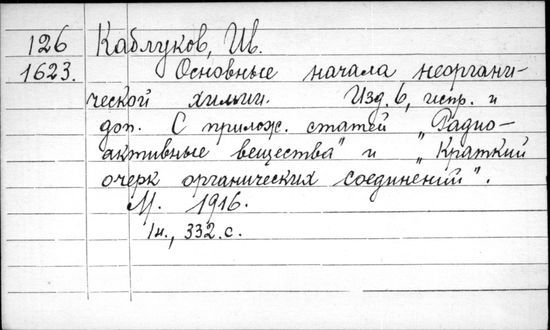 126 Каблуков, Ив.
1623. Основные начала неоргани-
ческой химии. Изд. 6, испр. и
доп. С прилож. статей „Радио-
активные вещества" и „Краткий
очерк органических соединений".
М. 1916.
1н., 332 с.